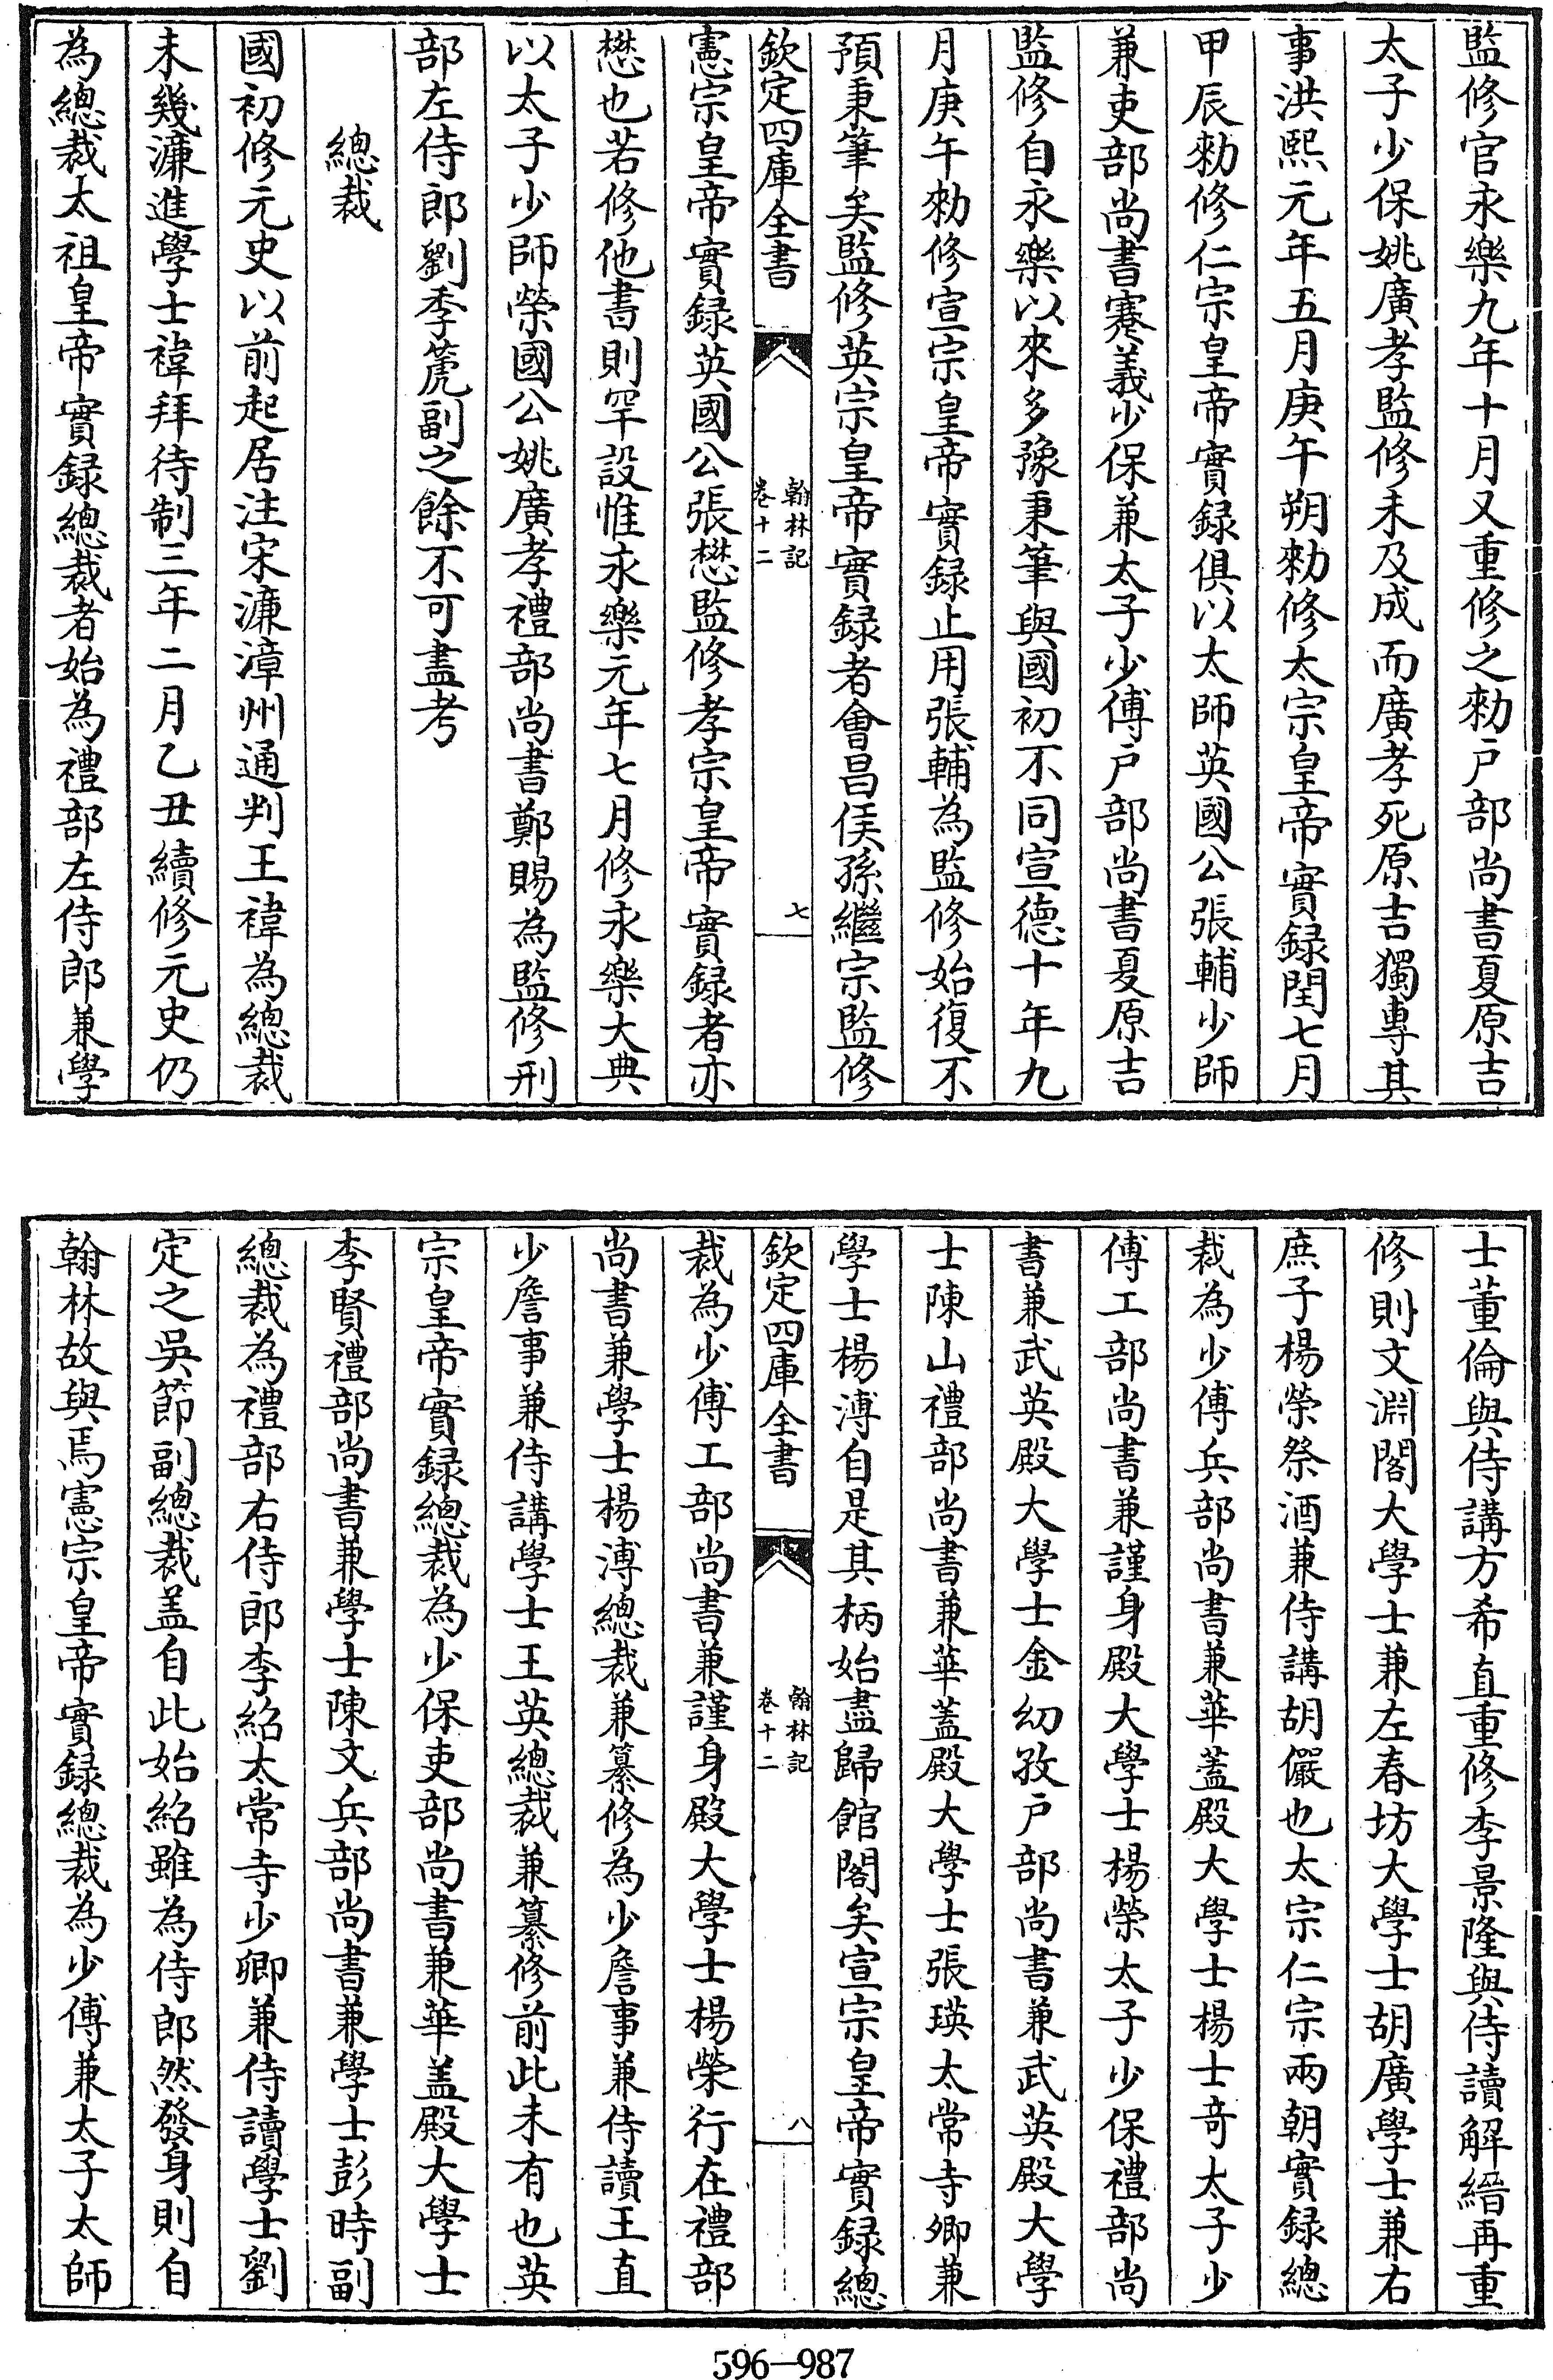 監修官永樂九年十月又重修之勅户部尚書夏原吉
太子少保姚廣孝監修未及成而廣孝死原吉獨專其
事洪熙元年五月庚午朔勅修太宗皇帝實録閏七月
甲辰勅修仁宗皇帝實録俱以太師英國公張輔少師
兼吏部尚書蹇義少保兼太子少傅户部尚書夏原吉
監修自永樂以來多豫秉筆與國初不同宣德十年九
月庚午勅修宣宗皇帝實録止用張輔為監修始復不
預秉筆矣監修英宗皇帝實録者會昌侯孫繼宗監修
欽定四庫全書
翰林記
卷十二
七
憲宗皇帝實録英國公張懋監修孝宗皇帝實録者亦
懋也若修他書則罕設惟永樂元年七月修永樂大典
以太子少師榮國公姚廣孝禮部尚書鄭賜為監修刑
部左侍郎劉季箎副之餘不可盡考
總裁
國初修元史以前起居注宋濂漳州通判王褘為總裁
未幾濂進學士褘拜待制三年二月乙丑續修元史仍
為總裁太祖皇帝實録總裁者始為禮部左侍郎兼學
士董倫與侍講方希直重修李景隆與侍讀解縉再重
修則文淵閣大學士兼左春坊大學士胡廣學士兼右
庶子楊榮祭酒兼侍講胡儼也太宗仁宗兩朝實録總
裁為少傅兵部尚書兼華蓋殿大學士楊士奇太子少
傅工部尚書兼謹身殿大學士楊榮太子少保禮部尚
書兼武英殿大學士金幼孜户部尚書兼武英殿大學
士陳山禮部尚書兼華蓋殿大學士張瑛太常寺卿兼
學士楊溥自是其柄始盡歸館閣矣宣宗皇帝實録總
欽定四庫全書
翰林記
卷十二
八
裁為少傅工部尚書兼謹身殿大學士楊榮行在禮部
尚書兼學士楊溥總裁兼纂修為少詹事兼侍讀王直
少詹事兼侍講學士王英總裁兼纂修前此未有也英
宗皇帝實録總裁為少保吏部尚書兼華盖殿大學士
李賢禮部尚書兼學士陳文兵部尚書兼學士彭時副
總裁為禮部右侍郎李紹太常寺少卿兼侍讀學士劉
定之吳節副總裁盖自此始紹雖為侍郎然發身則自
翰林故與焉憲宗皇帝實録總裁為少傅兼太子太師
596—987